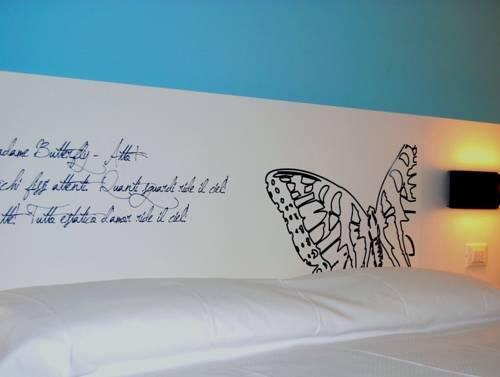 adame Butterfly - Atto I
cchi fissi attenti. Quanti sguardi ride il ciel!
tte. Tutta estatica d'amor ride il ciel!